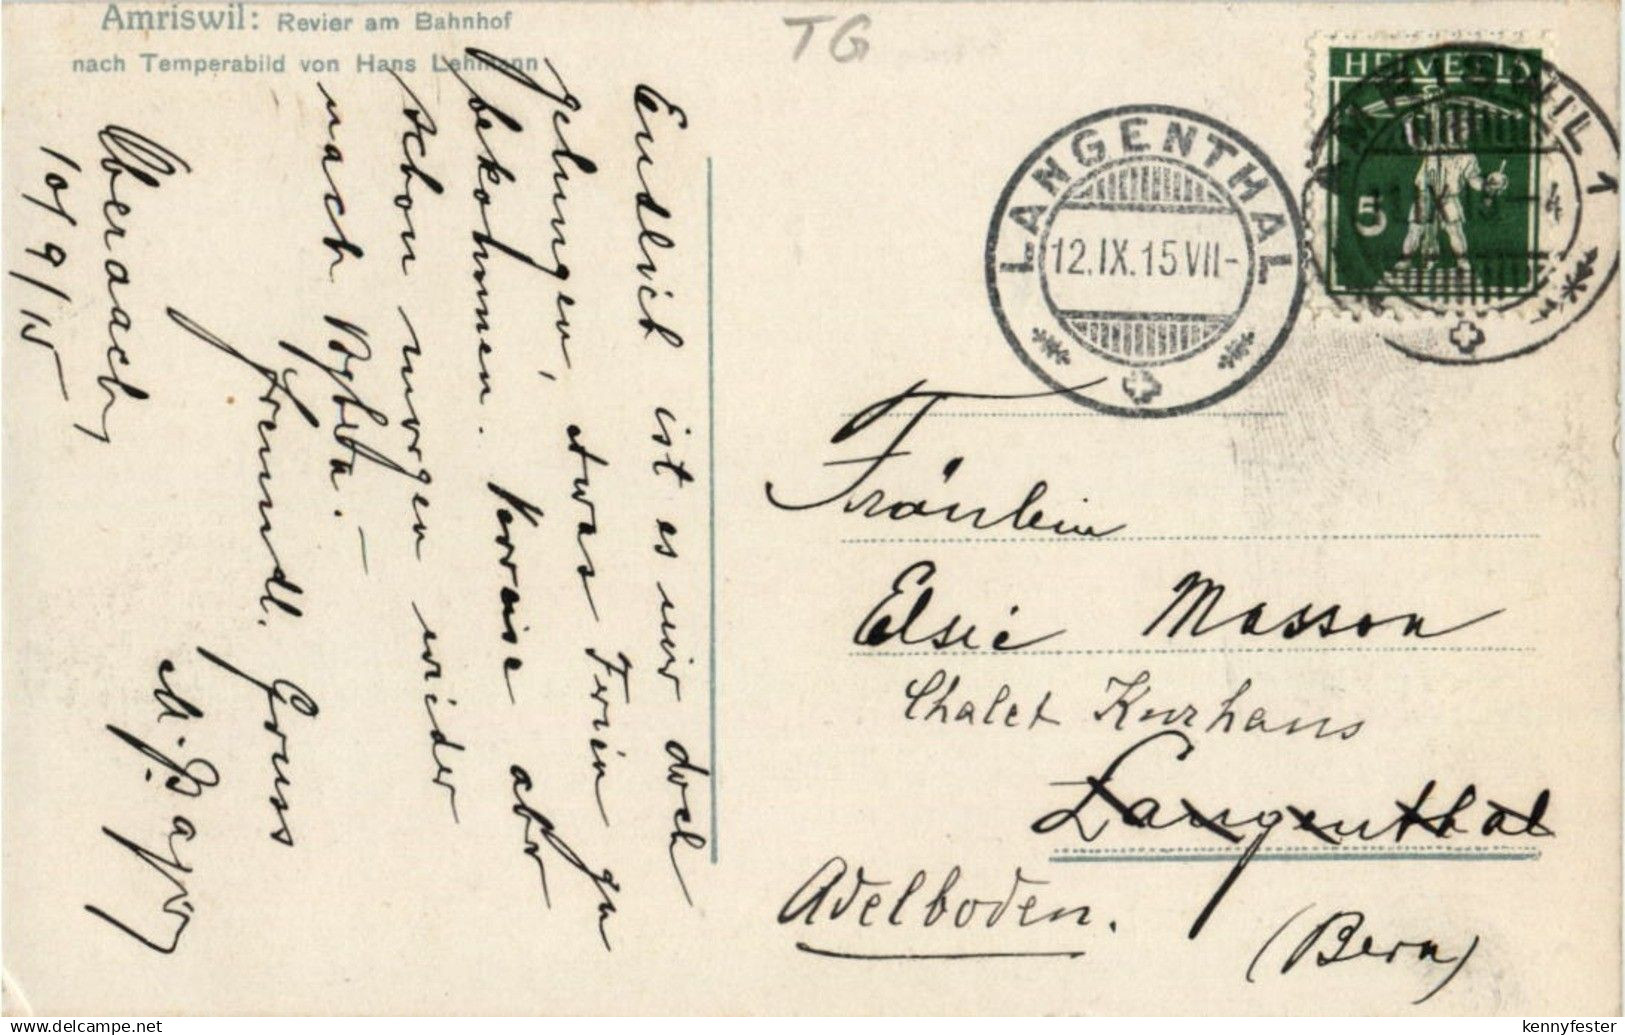 Amriswil: Revier am Bahnhof
nach Temperabild von Hans Lehmann
TG
HELVETIA
5
AMRISWIL 1
11.IX.15-4
LANGENTHAL
12.IX.15.VII-
Endlich ist es mir doch
gelungen, etwas Ferien zu
bekommen. Verreise aber
schon morgen wieder
nach
Freundl. Gruss
Oberaach
10/9/15
Fräulein
Elsie Masson
Chalet Kurhaus
Langenthal
Adelboden.
(Bern)
kennyfester